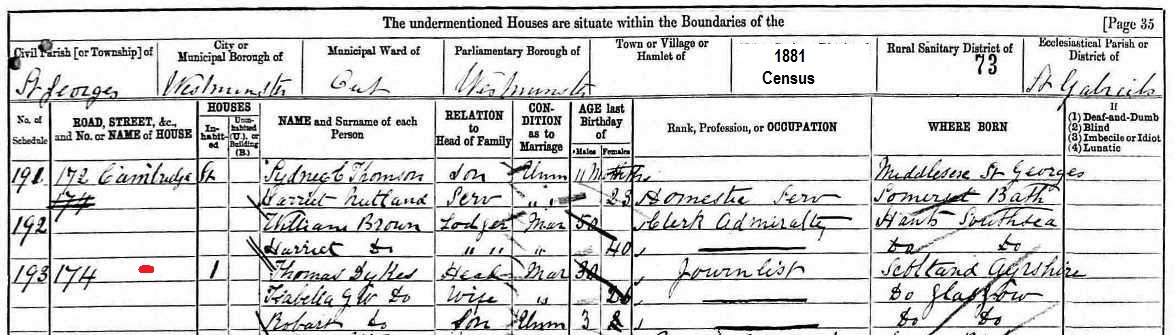 The undermentioned Houses are situate within the Boundaries of the [Page 35
Civil Parish [or Township] of City or Municipal Borough of Municipal Ward of Parliamentary Borough of Town or Village or Hamlet of 1881 Census Rural Sanitary District of Ecclesiastical Parish or District of
St Georges Westminster Out Westminster 73 St Gabriels
No. of Schedule ROAD, STREET, &c., and No. or NAME of HOUSE HOUSES Inhabited Uninhabited (U.), or Building (B.) NAME and Surname of each Person RELATION to Head of Family CONDITION as to Marriage AGE last Birthday of Males Females Rank, Profession, or OCCUPATION WHERE BORN If (1) Deaf-and-Dumb (2) Blind (3) Imbecile or Idiot (4) Lunatic
191 172 Cambridge St Sydney C Thomson Son Unm 11 Middlesex St Georges
174 Harriet Rutland Serv " " 23 Domestic Serv Somerset Bath
192 William Brown Lodger Mar 50 Clerk Admiralty Hants Southsea
Harriet Do " " " 40 Do Do
193 174 1 Thomas Dykes Head Mar 30 Journlist Scotland Ayrshire
Isabella G W Do Wife " 26 Do Glasgow
Robart do Son Unm 3 Do Do